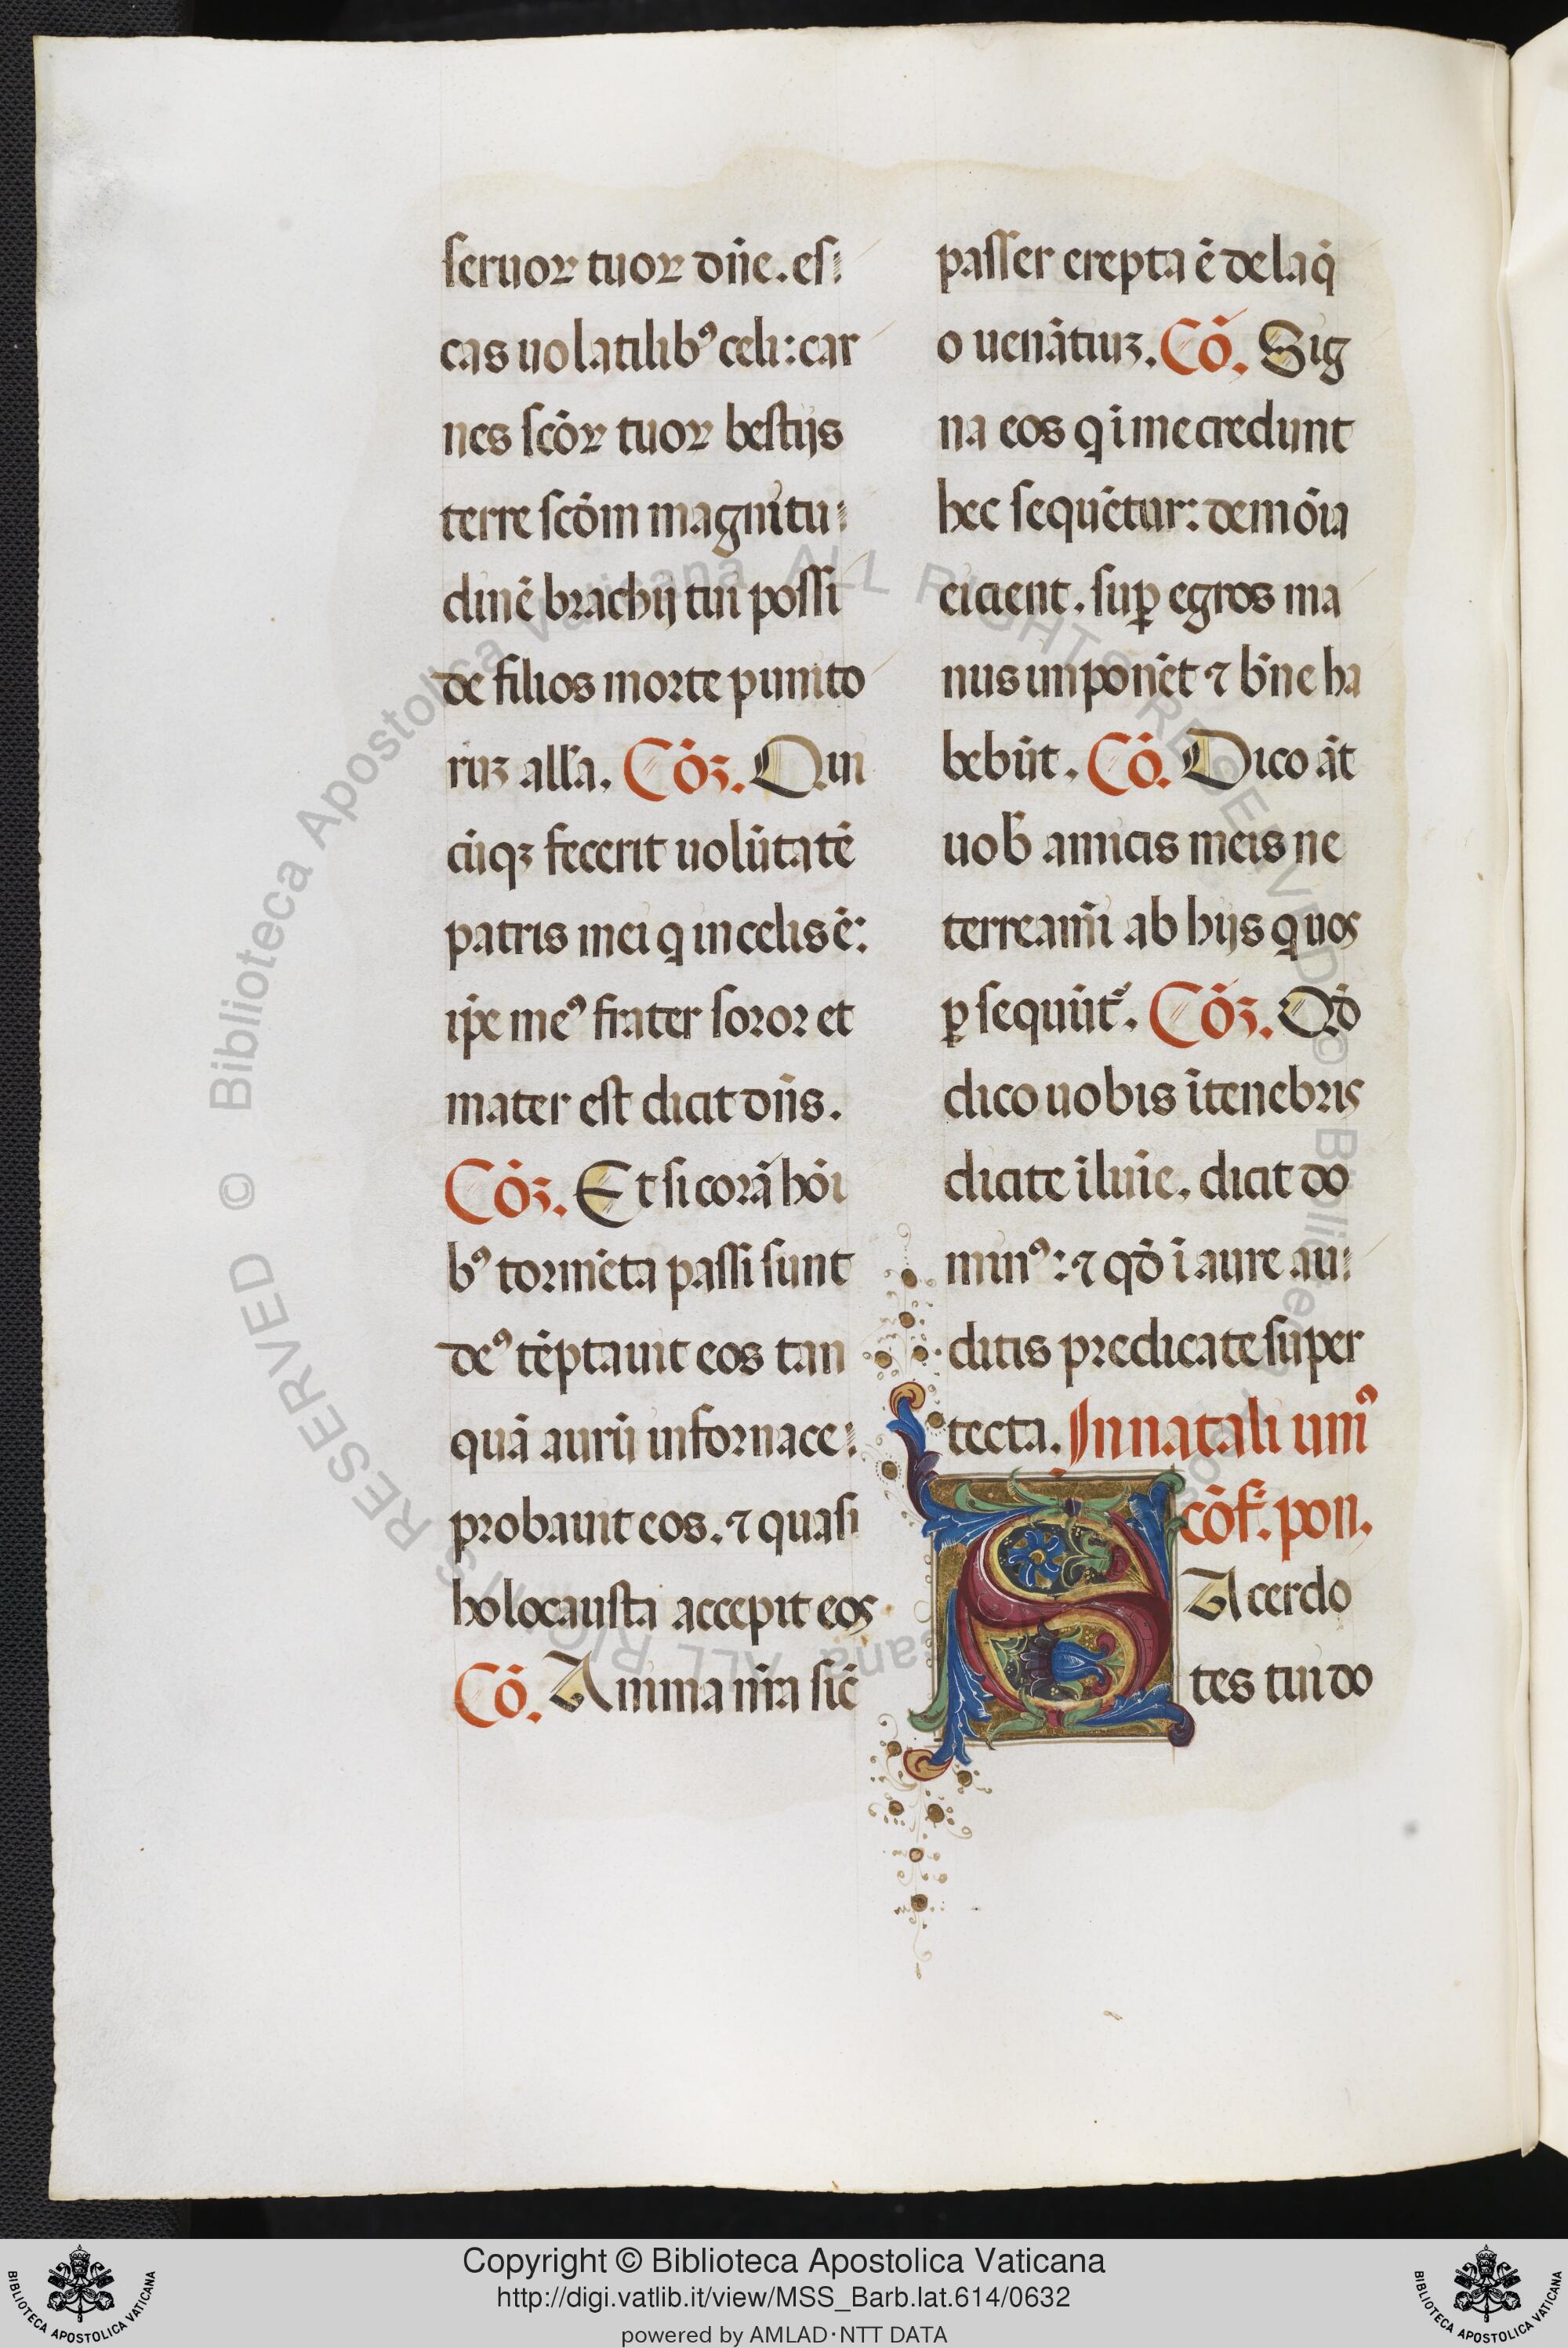 seruoꝝ tuoꝝ dn̄e. es⸗
cas uolatilibꝰ celi: car
nes scōꝝ tuoꝝ bestijs
terre scd̄m magnitu⸗
dinē brachij tui possi
de filios morte punito
ruꝫ all̄a. Cōꝫ. Qui
cūqꝫ fecerit uolūtatē
patris mei q in celis ē:
ip̄e meꝰ frater soror et
mater est dicit dn̄s.
Cōꝫ. Et si corā hōi
bꝰ tormēta passi sunt
deꝰ tēptauit eos tan
quā aurū in fornace:
probauit eos. ⁊ quasi
holocausta accepit eos
Cō. Anima nr̄a sic̄
passer erepta ē de laq̄
o uenātiuꝫ. Cō. Sig
na eos q ī me credunt
hec sequētur: demōia
eicient. suꝑ egros ma
nus imponēt ⁊ bn̄e ha
bebūt. Cō. Dico āt
uob̄ amicis meis ne
terreamī ab hijs quos
ꝑsequūt᷑. Cōꝫ. Qd̄
dico uobis ī tenebris
dicite ī luīe. dicit do
minꝰ: ⁊ qd̄ ī aure au⸗
ditis predicate super
tecta. In natali uniꝰ
cōf. pon.
SAcerdo
tes tui do
Copyright © Biblioteca Apostolica Vaticana
http://digi.vatlib.it/view/MSS_Barb.lat.614/0632
powered by AMLAD·NTT DATA
BIBLIOTECA APOSTOLICA VATICANA
BIBLIOTECA APOSTOLICA VATICANA
© Biblioteca Apostolica Vaticana ALL RIGHTS RESERVED